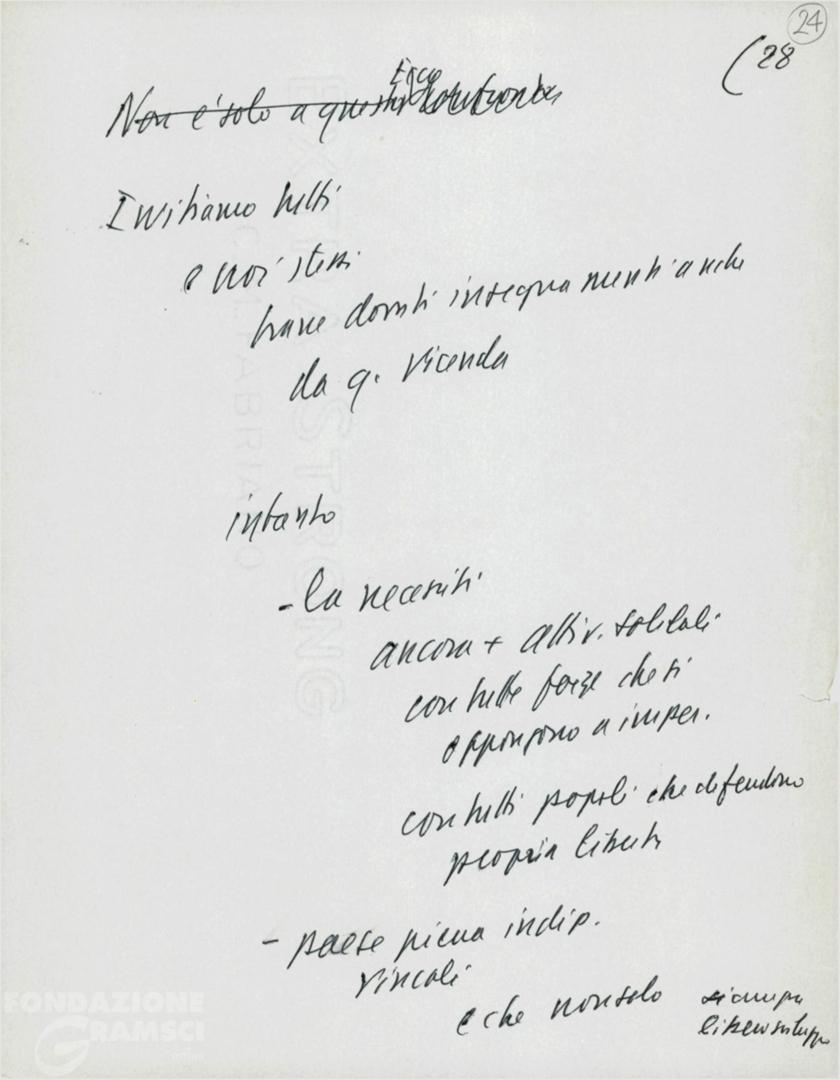 24
(28
Non è solo a questo
Ecco
Invitiamo tutti
e noi stessi
trarre dovuti insegnamenti anche
da q. vicenda
intanto
- la necessità
ancora + attiv. solidali
con tutte forze che si
oppongono a imper.
con tutti popoli che difendono
propria libertà
- paese piena indip.
vincoli
e che non solo
libero sviluppo
EXTRA STRONG
FABRIANO
FONDAZIONE
GRAMSCI